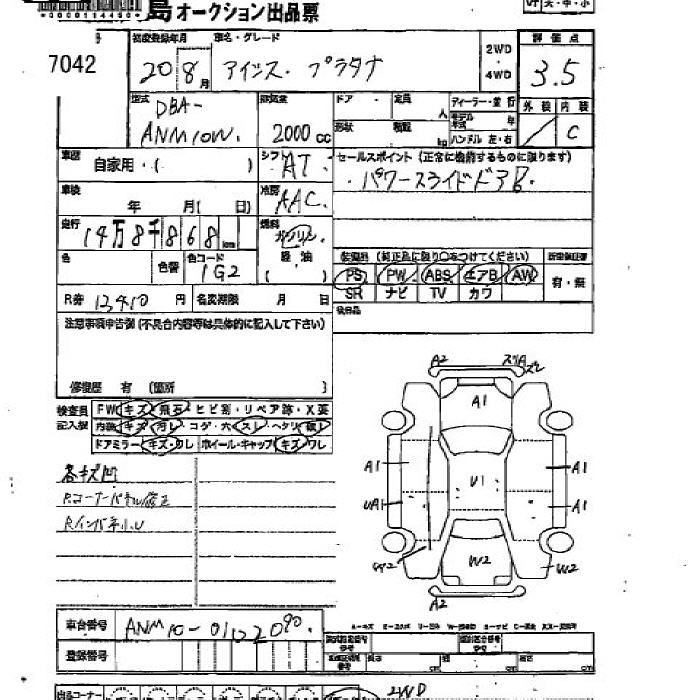 島オークション出品票
7042
初度登録年月
20 8月
車名・グレード
アイシス・プラタナ
2WD
・
4WD
評価点
3.5
外装 内装
C
型式
DBA-
ANM10W.
排気量
2000 cc
ドア
定員
人
形状
積載
kg
ディーラー・並行
モデル年式 年
ハンドル 左・右
車歴
自家用・( )
シフト
AT
セールスポイント (正常に機能するものに限ります)
・パワースライドドア
車検
年 月( 日)
冷房
AAC.
走行
14万8千868 km
燃料
ガソリン
軽油
( )
色
色替
色コード
1G2
装備品 (純正品に限り〇をつけてください)
PS PW ABS エアB AW
SR ナビ TV カワ
有・無
後日品
R券 12410 円
名変期限 月 日
注意事項申告欄 (不具合内容等は具体的に記入して下さい)
修復歴 有 (箇所 )
検査員
記入欄
FW キズ・飛石・ヒビ割・リペア跡・X要
内装 キズ・汚レ・コゲ・穴・スレ・ヘタリ
ドアミラー キズ・ワレ ホイール・キャップ キズ・ワレ
各キズ凹
Rコーナーパネル修正
A2
A1
A1
A1
UA1
U1
A1
W2
W2
A2
車台番号
ANM10-0112090.
登録番号
長さ cm
幅 cm
高さ cm
出品コーナー
2WD